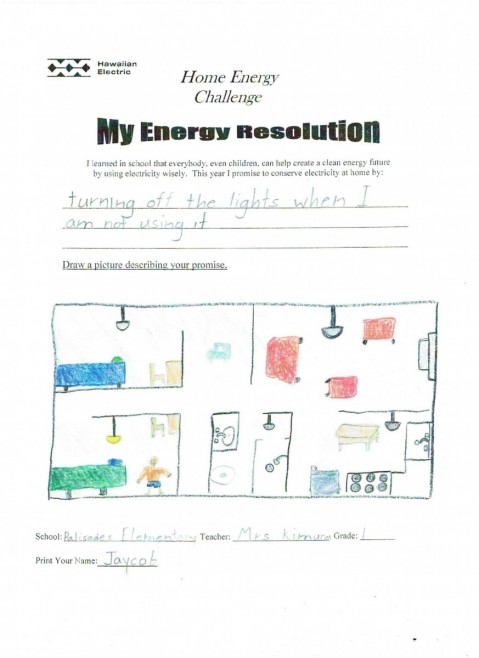 Hawaiian
Electric
Home Energy
Challenge
My Energy Resolution
I learned in school that everybody, even children, can help create a clean energy future
by using electricity wisely. This year I promise to conserve electricity at home by:
turning off the lights when I
am not using it
Draw a picture describing your promise.
School: Palisades Elementary Teacher: Mrs Kimura Grade: 1
Print Your Name: Jaycob